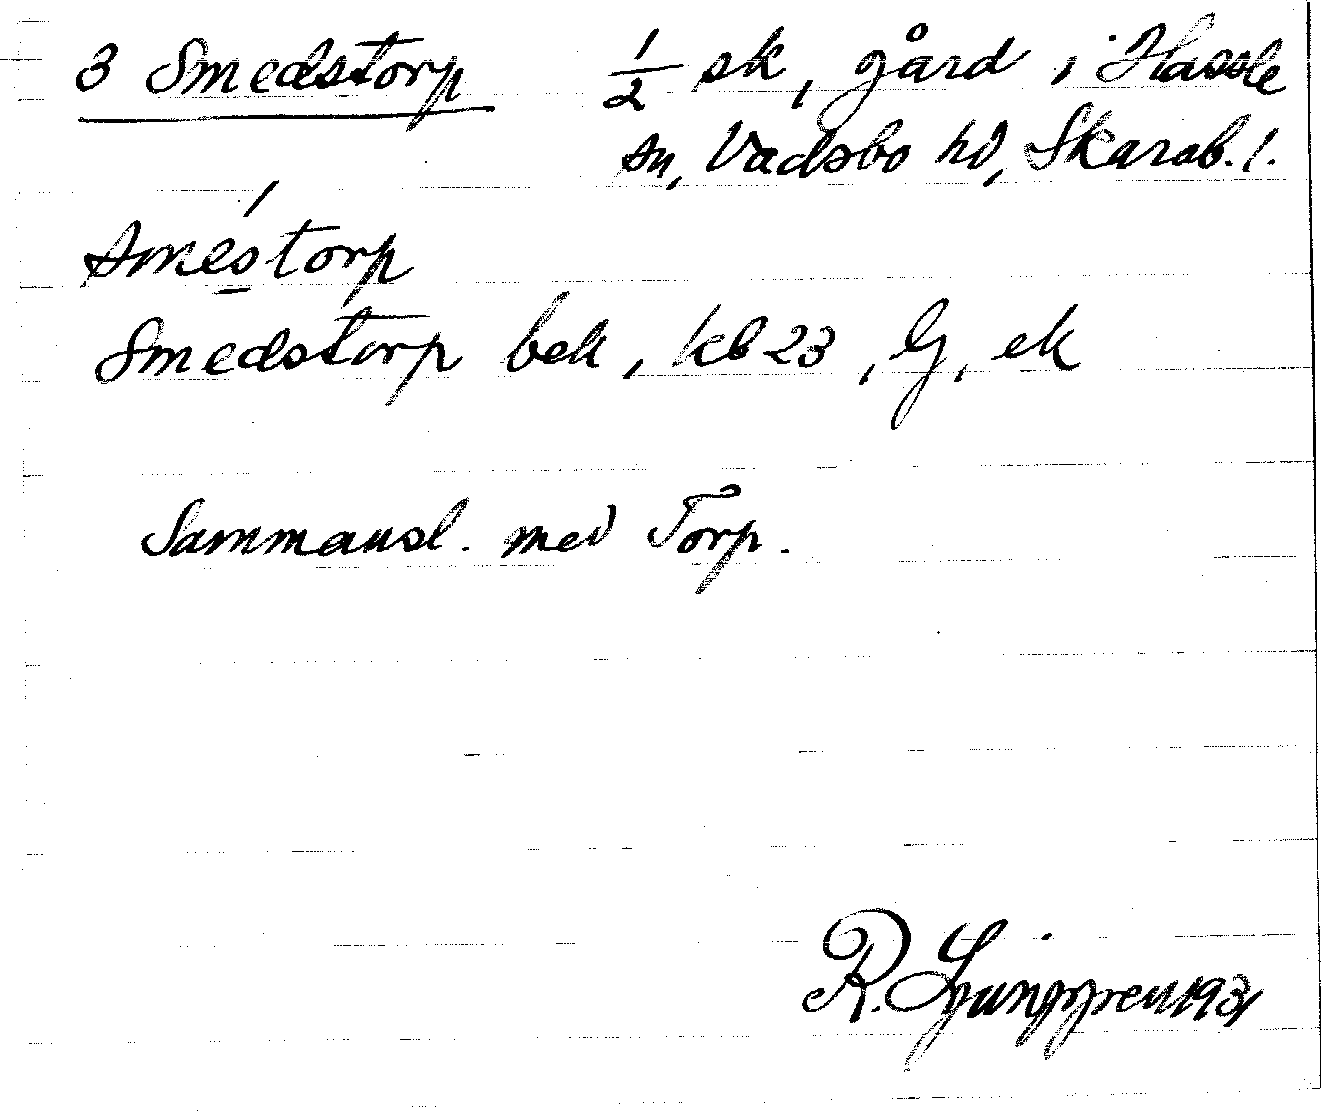 3 Smedstorp 1/2 sk, gård i Hassle
sn, Vadsbo hd, Skarab. l.
sméstorp
Smedstorp bek, kb 23, G, ek
Sammansl. med Torp.
R. Ljunggren 1931